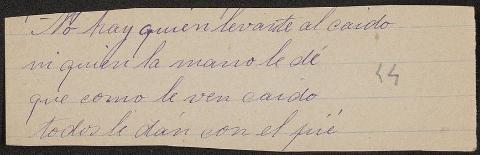 No hay quien levante al caido
ni quien la mano le dé
que como le ven caido
todos le dán con el pié
44